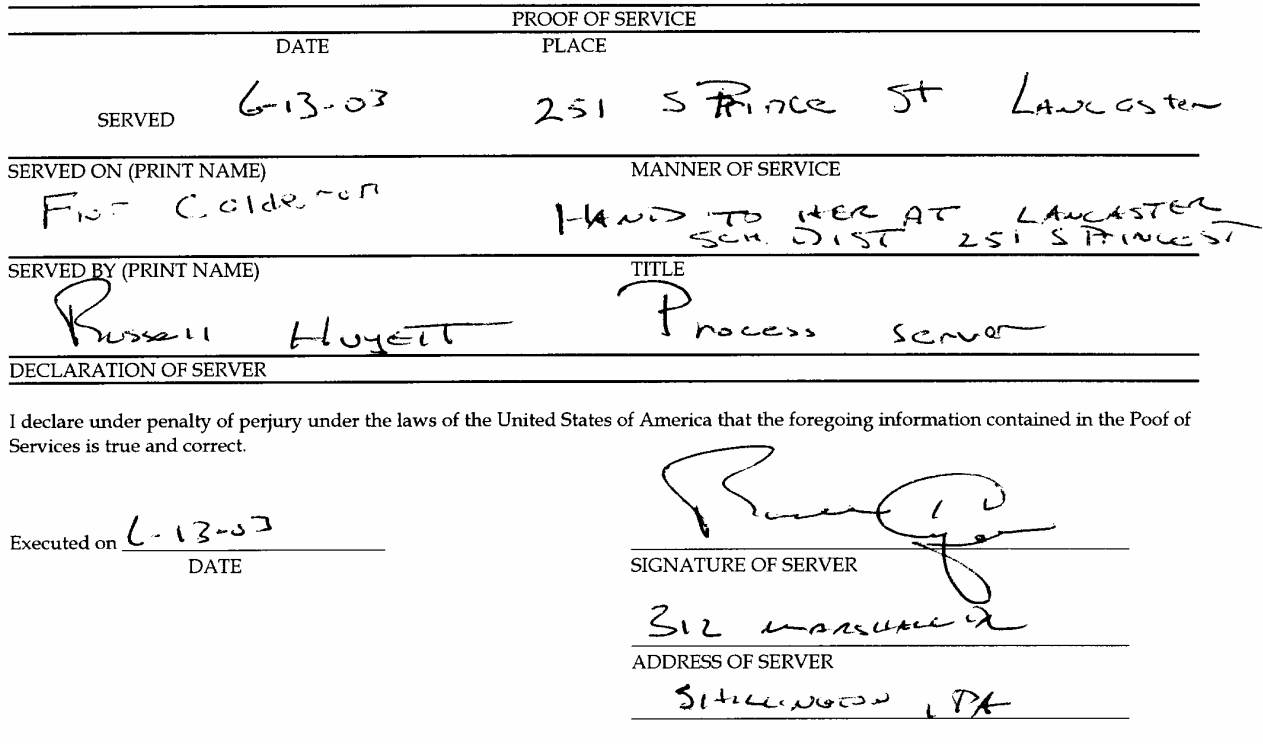 PROOF OF SERVICE
DATE PLACE
SERVED 6-13-03 251 S Prince St Lancaster
SERVED ON (PRINT NAME) MANNER OF SERVICE
Calderon HAND TO HER AT LANCASTER
SCH. DIST 251 S PRINCE ST
SERVED BY (PRINT NAME) TITLE
Russell HuyETT Process server
DECLARATION OF SERVER
I declare under penalty of perjury under the laws of the United States of America that the foregoing information contained in the Poof of
Services is true and correct.
Executed on 6-13-03
DATE SIGNATURE OF SERVER
312 MARSHALL DR
ADDRESS OF SERVER
SHILLINGTON, PA